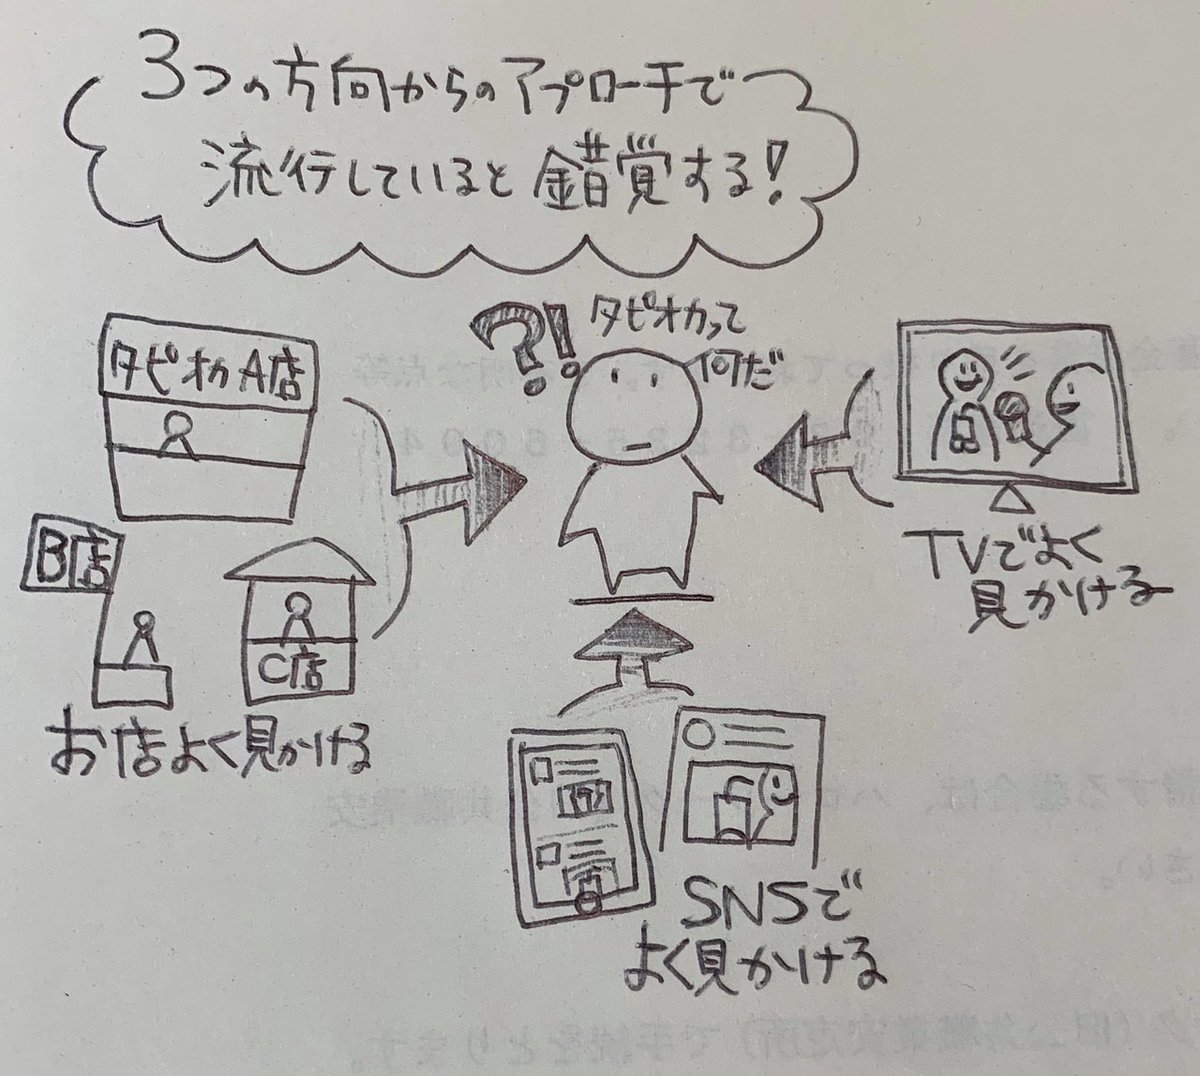 3つの方向からのアプローチで
流行していると錯覚する!
?!
タピオカって
何だ
タピオカA店
B店
C店
お店よく見かける
TVでよく
見かける
SNSで
よく見かける